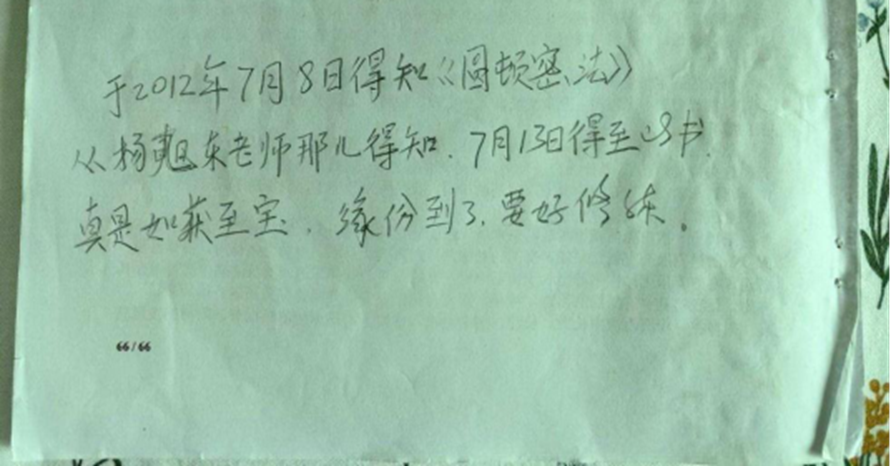 于2012年7月8日得知《圆顿密法》
从杨 东老师那儿得知.7月13日得到此书.
真是如获至宝.缘份到了.要好修炼.
66/66